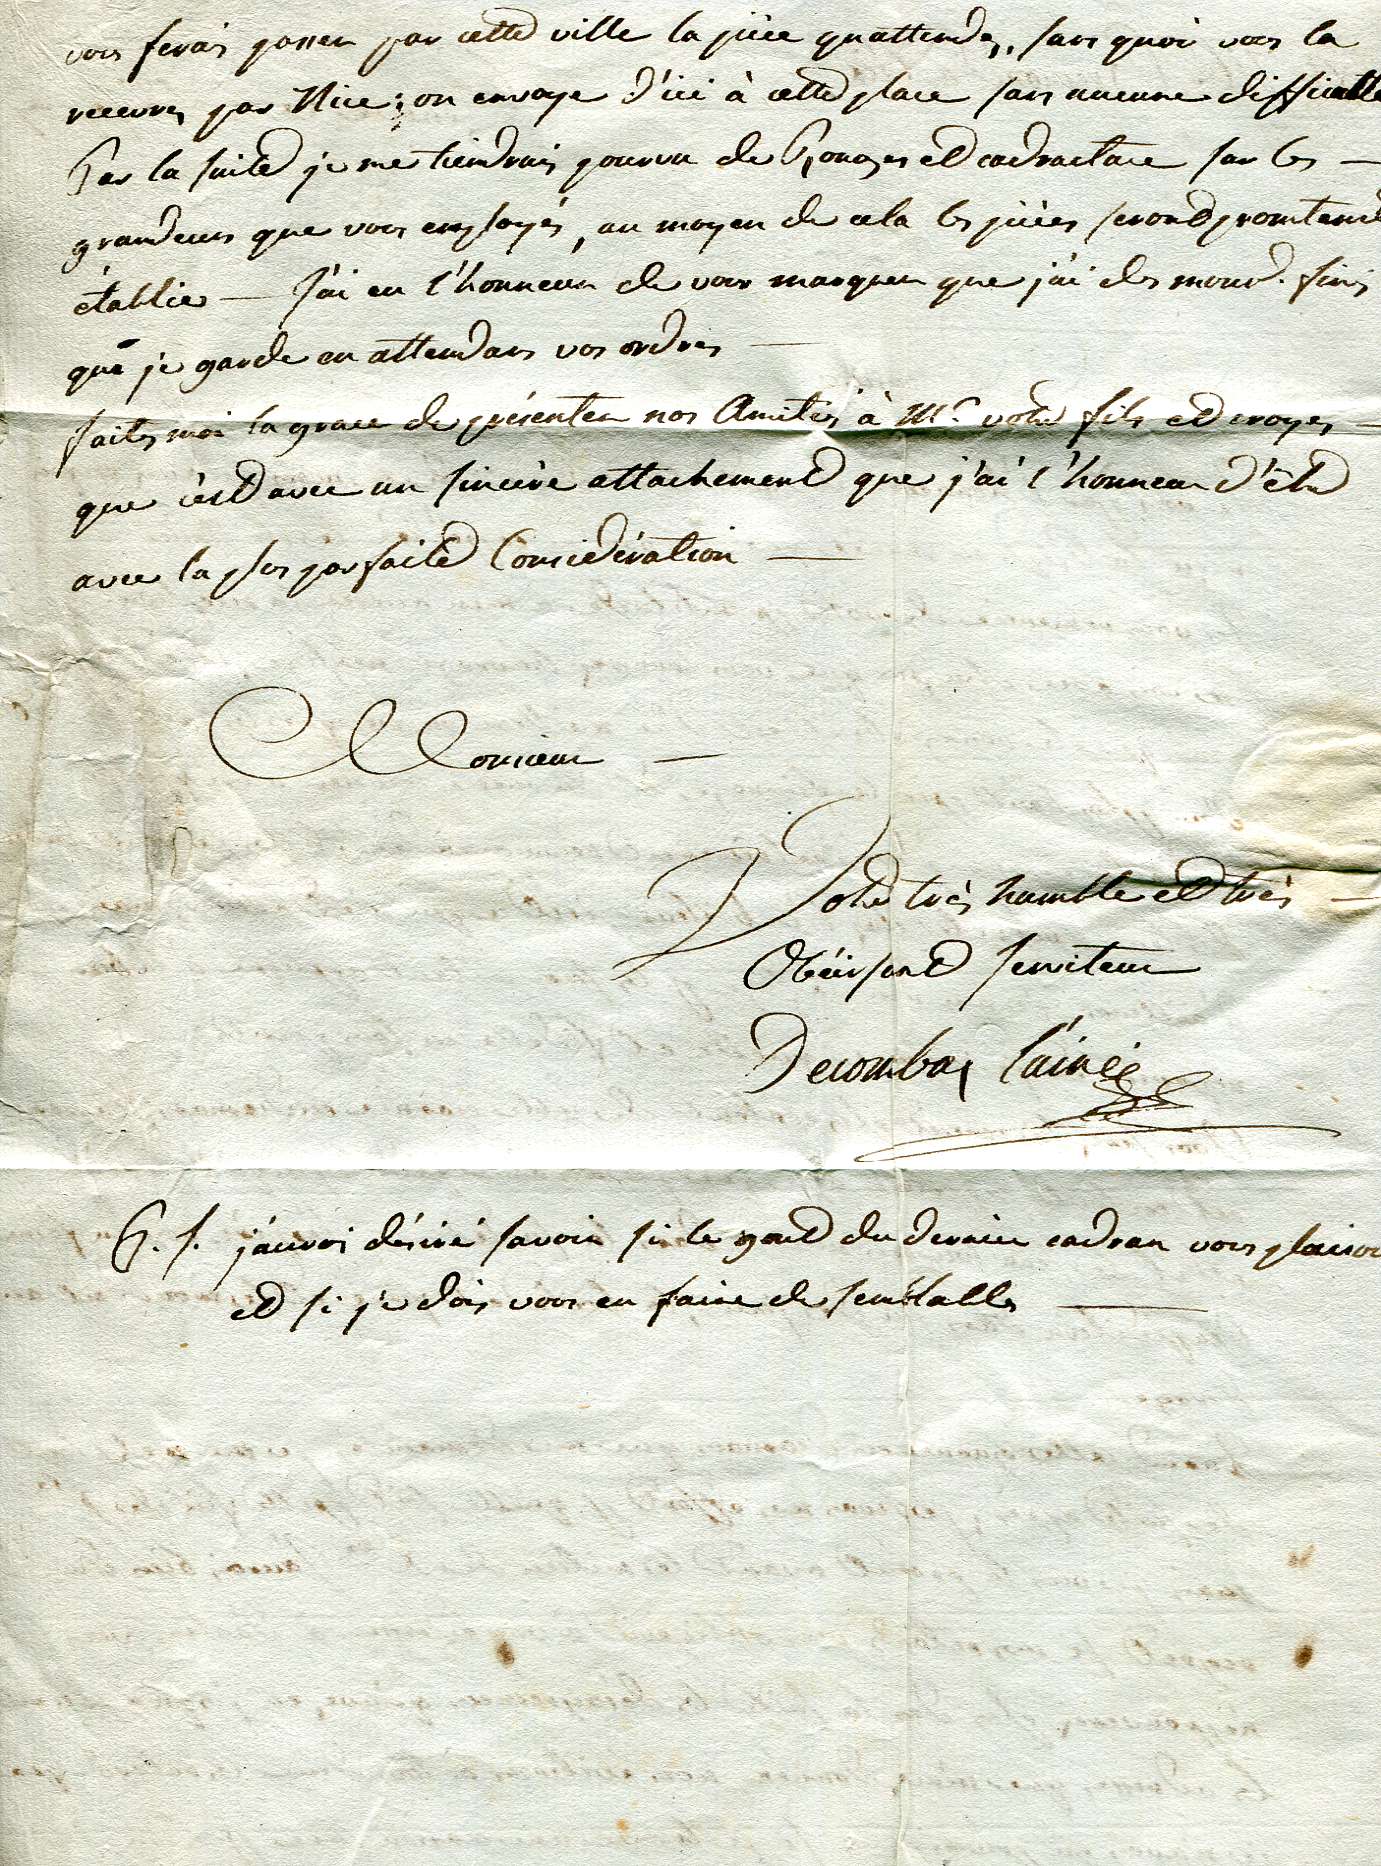 vous ferais passer par cette ville la pièce qu'attendez, sans quoi vous la
recevrez par Nice; on envoye d'ici à cette place sans aucune difficulté
Par la suite je me tiendrais pourvu de Rouages et cadracture sur les —
grandeurs que vous employés, au moyen de cela les pièces seront promtement
établie — J'ai eu l'honneur de vous marquer que j'ai des mouv.t finis
que je garde en attendans vos ordres —
faites moi la grace de présenter nos Amitiés à Mr. votre fils et croyez —
que c'est avec un sincère attachement que j'ai l'honneur d'être
avec la plus parfaite Considération —
Monsieur —
Votre très humble et très —
Obéissant serviteur
Decombaz l'ainé
P. S. j'aurois désiré savoir si le gout du dernier cadran vous plairoit
et si je dois vous en faire de semblable —